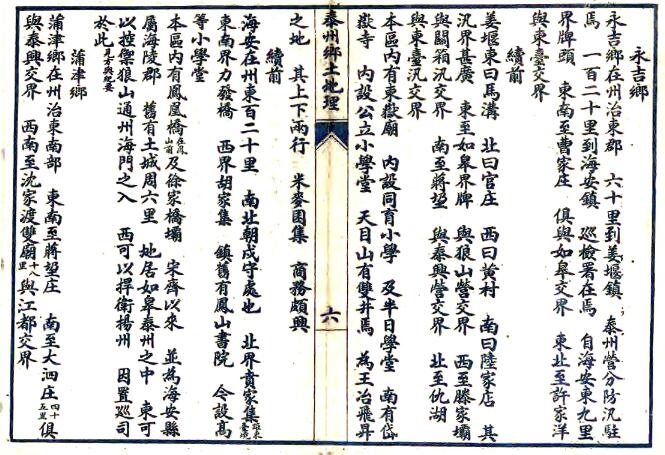 永吉鄉
永吉鄉在州治東郡　六十里到姜堰鎮　泰州營分防汛駐
焉　一百二十里到海安鎮　巡檢署在焉　自海安東九里
界牌頭　東南至曹家庄　俱與如皋交界　東北至許家洋
與東臺交界
續前
姜堰東曰馬溝　北曰官庄　西曰黃村　南曰陸家店　其
汛界甚廣　東至如皋界牌　與狼山營交界　西至滕家壩
與關箱汛交界　南至蔣垈　與泰興營交界　北至仇湖
與東臺汛交界
本區內有東嶽廟　內設同育小學　及半日學堂　南有岱
嶽寺　內設公立小學堂　天目山有雙井焉　為王冶飛昇
泰州鄉土地理
六
之地　其上下兩行　米麥囤集　商務頗興
續前
海安在州東百二十里　南北朝戍守處也　北界賁家集離東臺境
東南界力發橋　西界胡家集　鎮舊有鳳山書院　今設高
等小學堂
本區內有鳳凰橋在鳳山前及徐家橋壩　宋齊以來　並為海安縣
屬海陵郡　舊有土城周六里　地居如皋泰州之中　東可
以控禦狼山通州海門之入　西可以捍衛揚州　因置巡司
於此見方輿紀要
蒲津鄉
蒲津鄉在州治東南部　東南至蔣垈庄　南至大泗庄四十五里俱
與泰興交界　西南至沈家渡雙廟十八里與江都交界